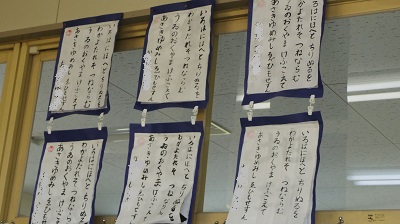 いろはにほへと ちりぬるを
わがよたれそ つねならむ
うゐのおくやま けふこえて
あさきゆめみし ゑひもせすん
いろはにほへと ちりぬるを
わがよたれそ つねならむ
うゐのおくやま けふこえて
あさきゆめみし ゑひもせすん
いろはにほへと ちりぬるを
わがよたれそ つねならむ
うゐのおくやま けふこえて
あさきゆめみし ゑひもせすん
いろはにほへと ちりぬるを
わがよたれそ つねならむ
うゐのおくやま けふ
あさきゆめみし
いろはにほへと ちりぬるを
わがよたれそ つねなら
うゐのおくやま けふこえ
あさきゆめみし
いろはにほへと ちりぬるを
わがよたれそ つねならむ
うゐのおくやま けふこ
あさきゆめみし ゑひ